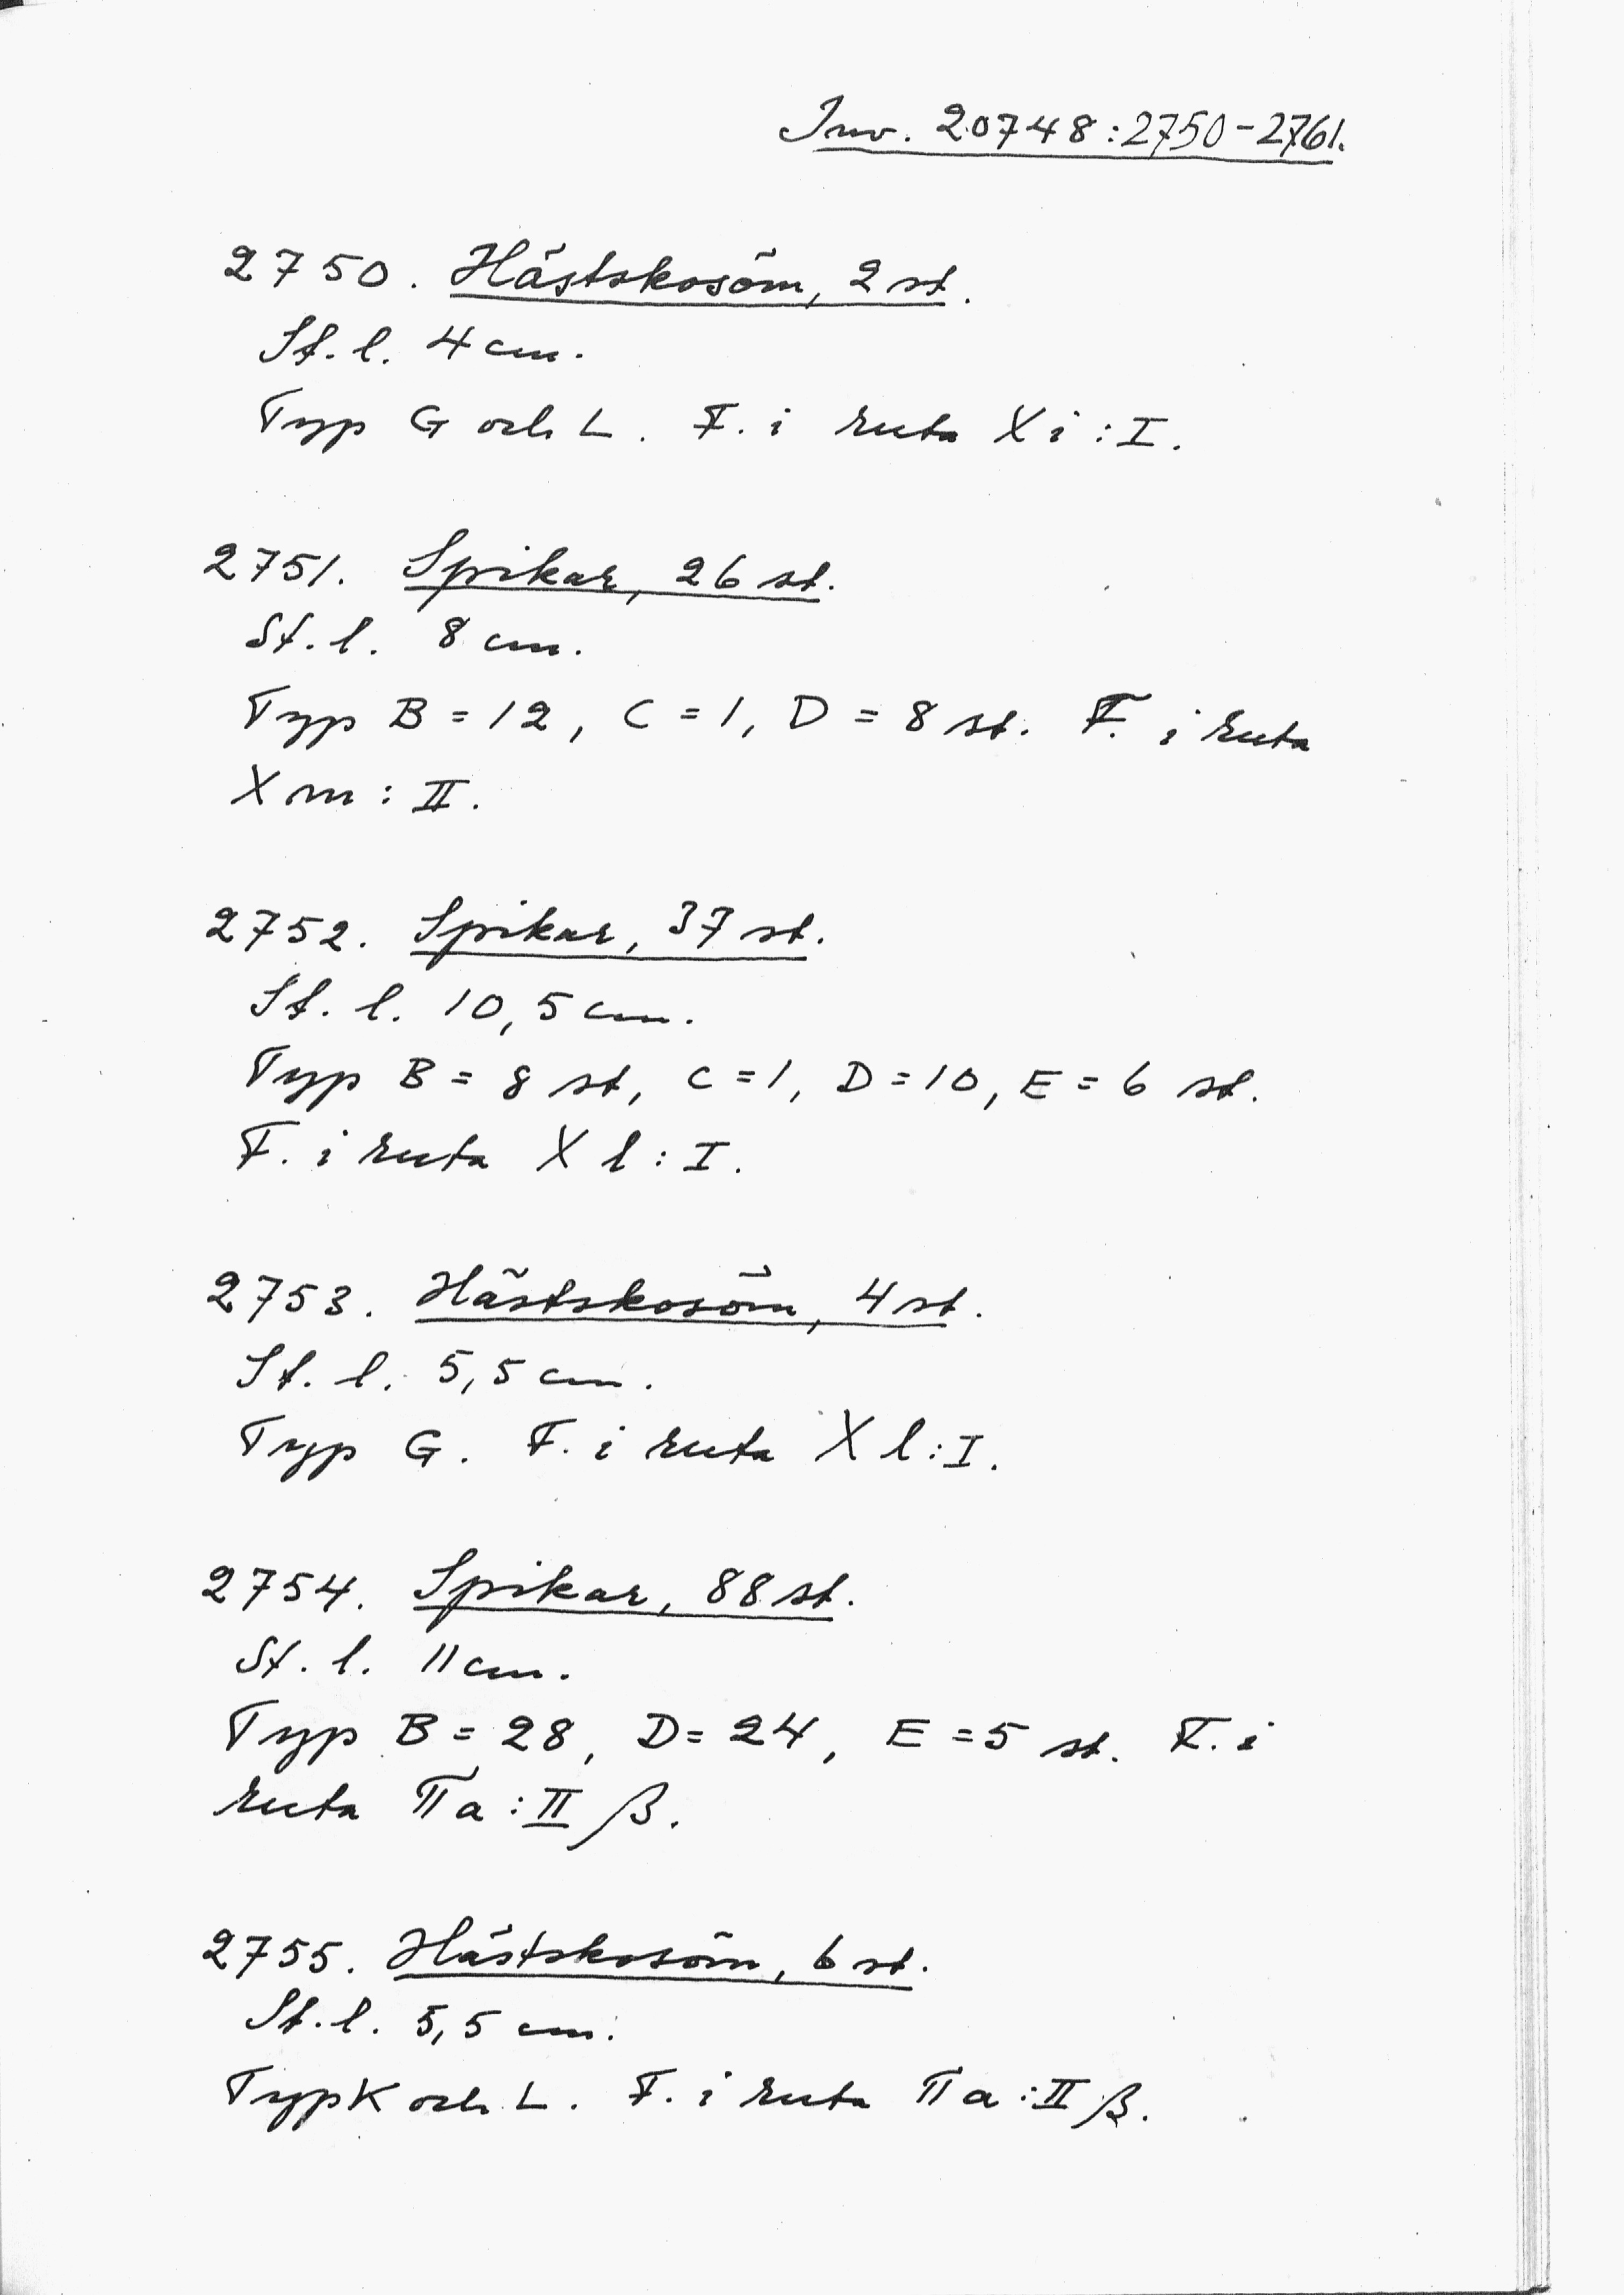 Inv. 20748:2750-2761.
2750. Hästskosöm, 2 st.
St. l. 4 cm.
Typ G och L. F. i ruta X i : I.
2751. Spikar, 26 st.
St. l. 8 cm.
Typ B = 12, C = 1, D = 8 st. F. i ruta
X m : II.
2752. Spikar, 37 st.
St. l. 10,5 cm.
Typ B = 8 st, C = 1, D = 10, E = 6 st.
F. i ruta X l : I.
2753. Hästskosöm, 4 st.
St. l. 5,5 cm.
Typ G. F. i ruta X l : I.
2754. Spikar, 88 st.
St. l. 11 cm.
Typ B = 28, D = 24, E = 5 st. F. i
ruta Π a : II β.
2755. Hästskosöm, 6 st.
St. l. 5,5 cm.
Typ K och L. F. i ruta Π a : II β.